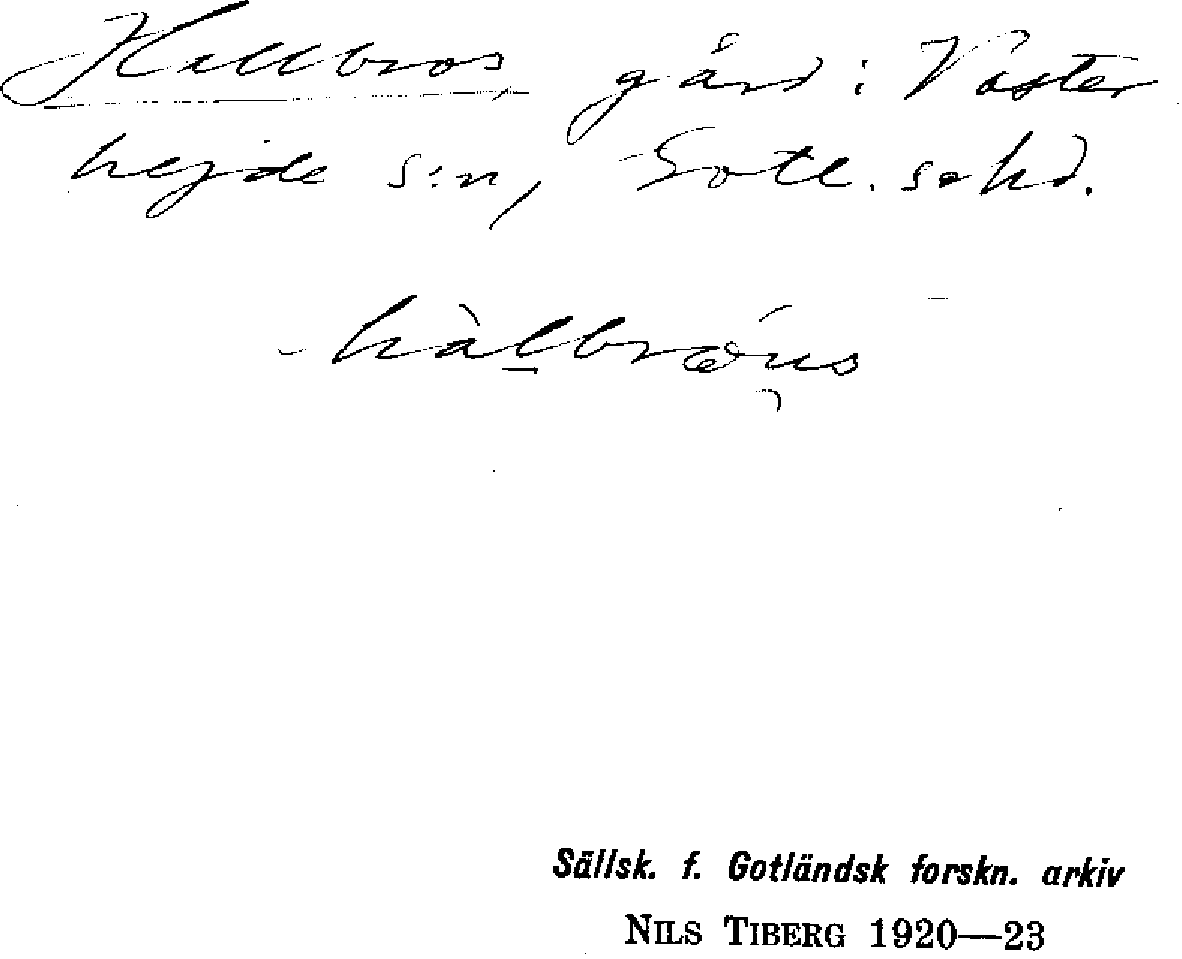 Hallbros, gård i Väster
hejde s:n, Gotl. s. hd.
hàl̠bròu̯s
Sällsk. f. Gotländsk forskn. arkiv
NILS TIBERG 1920—23